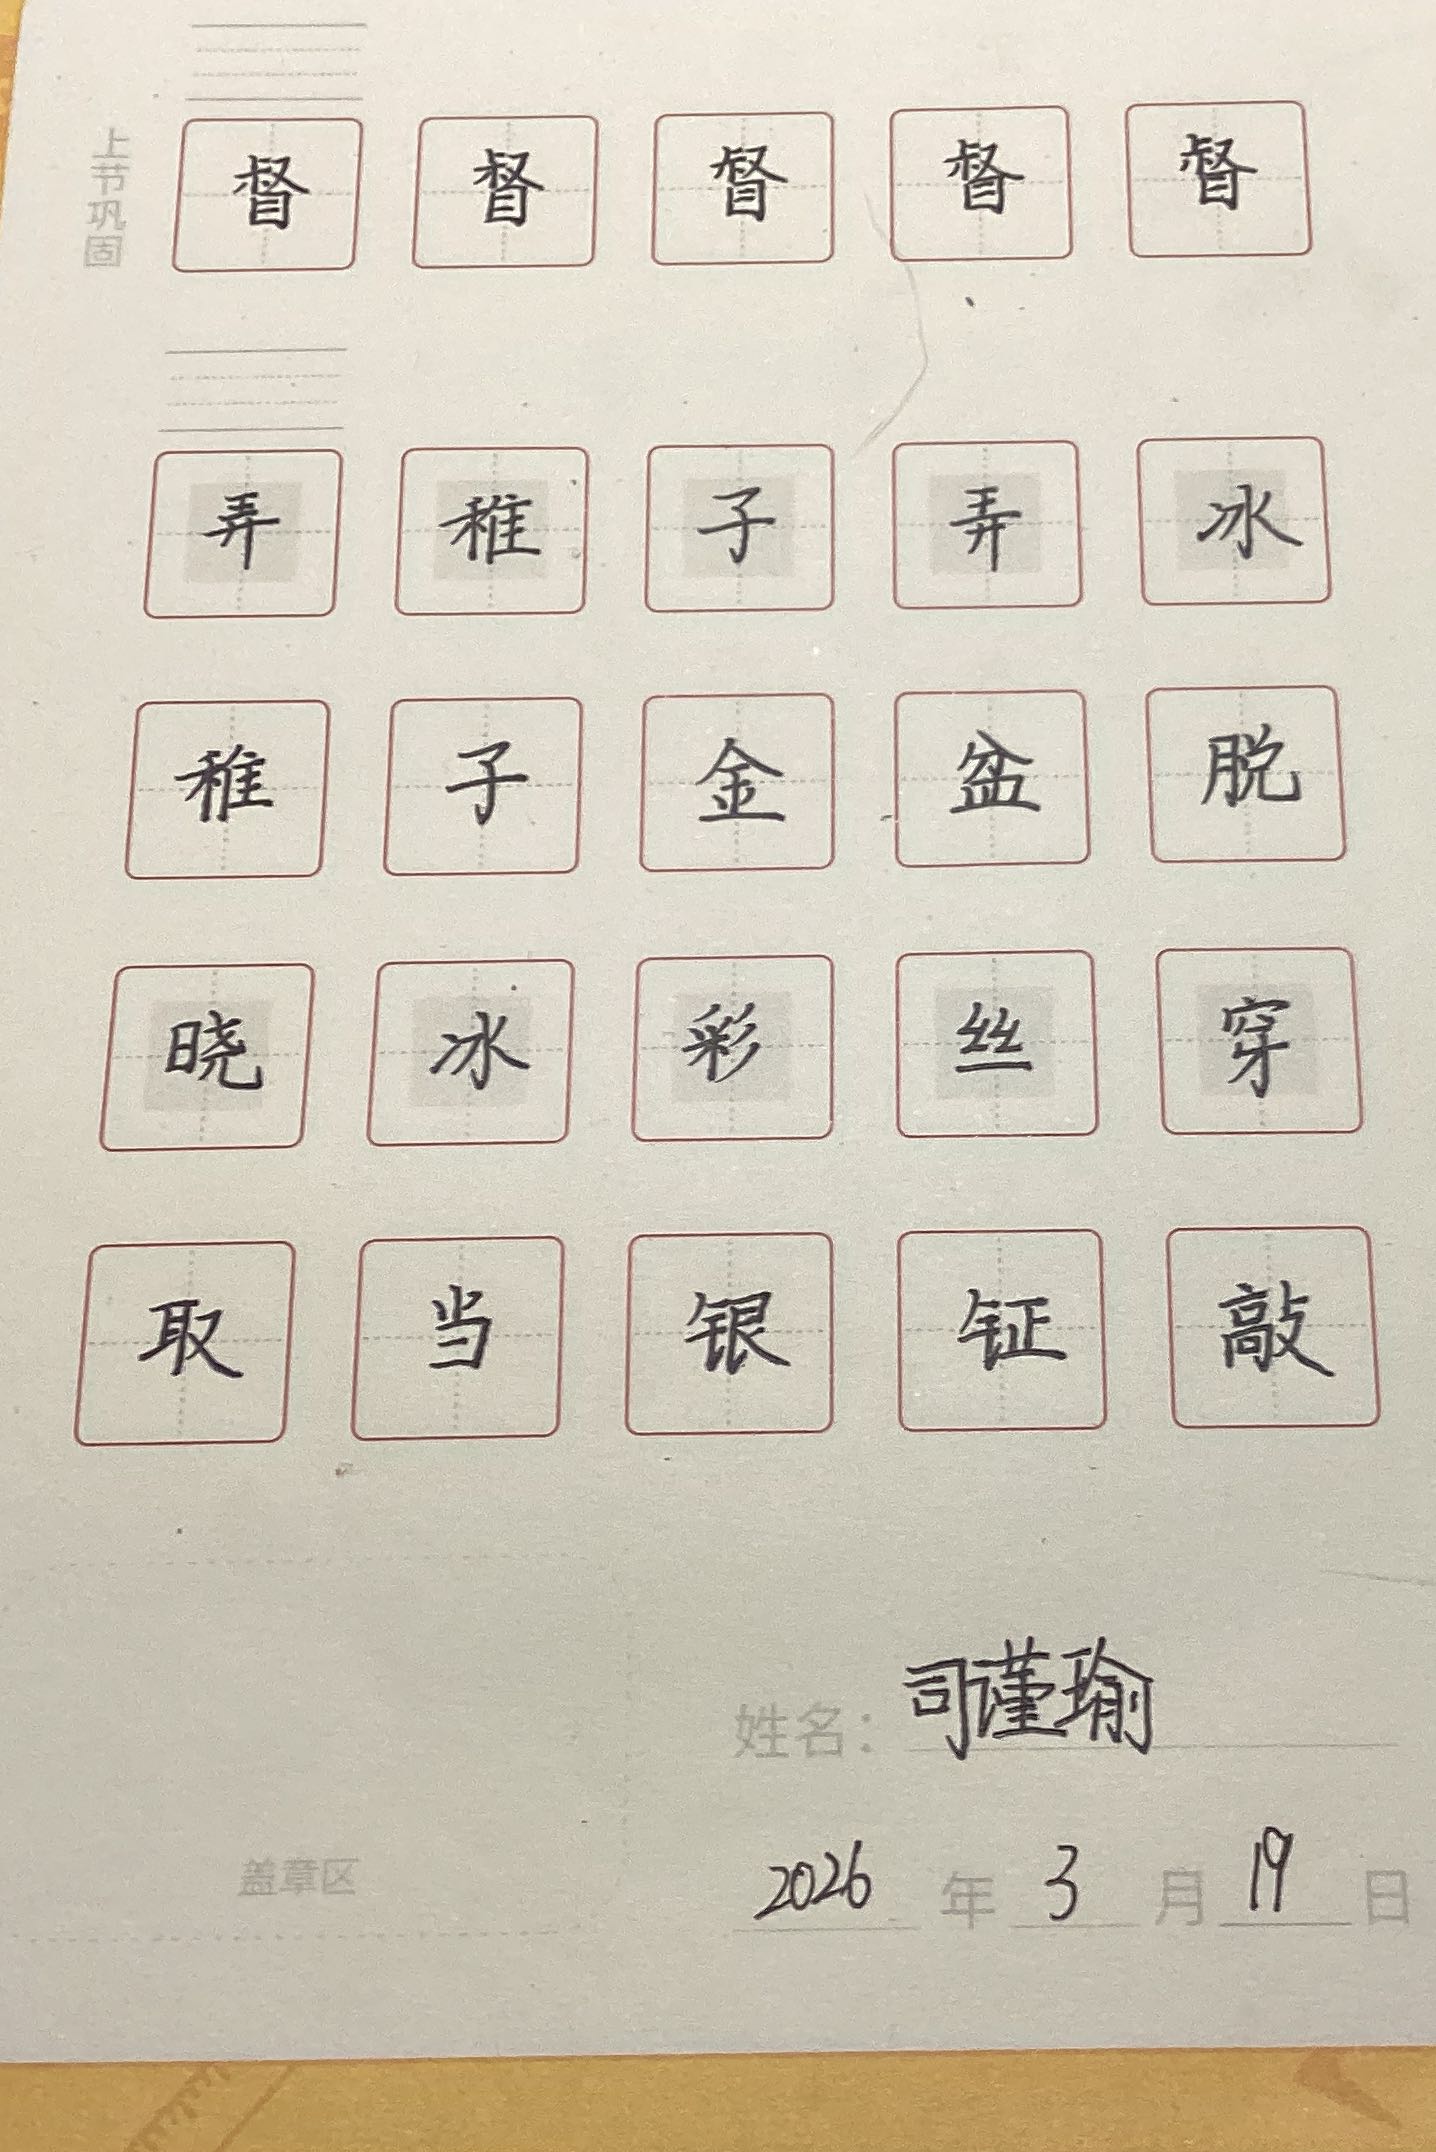 上节巩固
督 督 督 督 督
弄 稚 子 弄 冰
稚 子 金 盆 脱
晓 冰 彩 丝 穿
取 当 银 钲 敲
姓名：司谨瑜
盖章区
2026 年 3 月 19 日